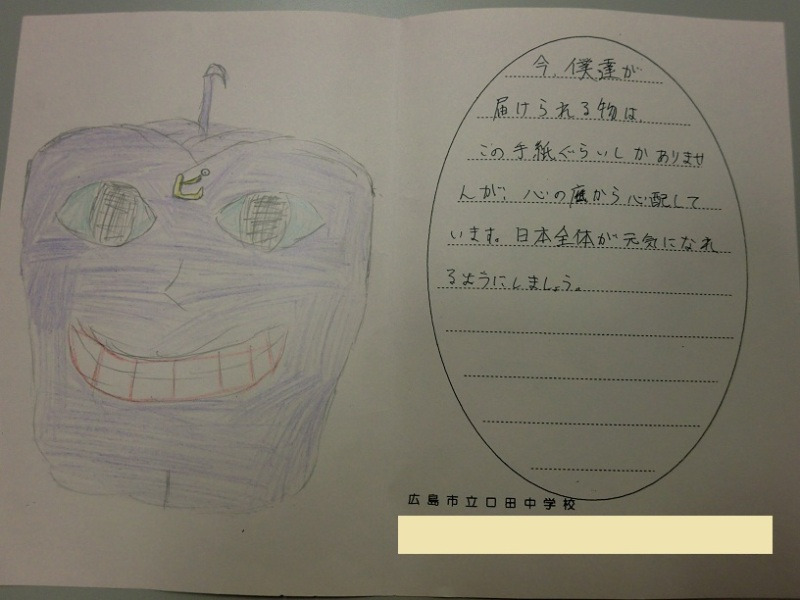 今、僕達が
届けられる物は、
この手紙ぐらいしかありませ
んが、心の底から心配して
います。日本全体が元気になれ
るようにしましょう。
広島市立口田中学校